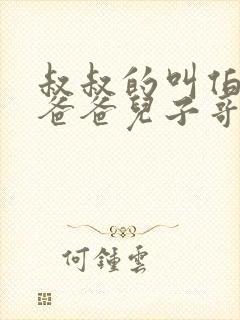 叔叔的叫伯
爸爸兒子哥
何鍾雲